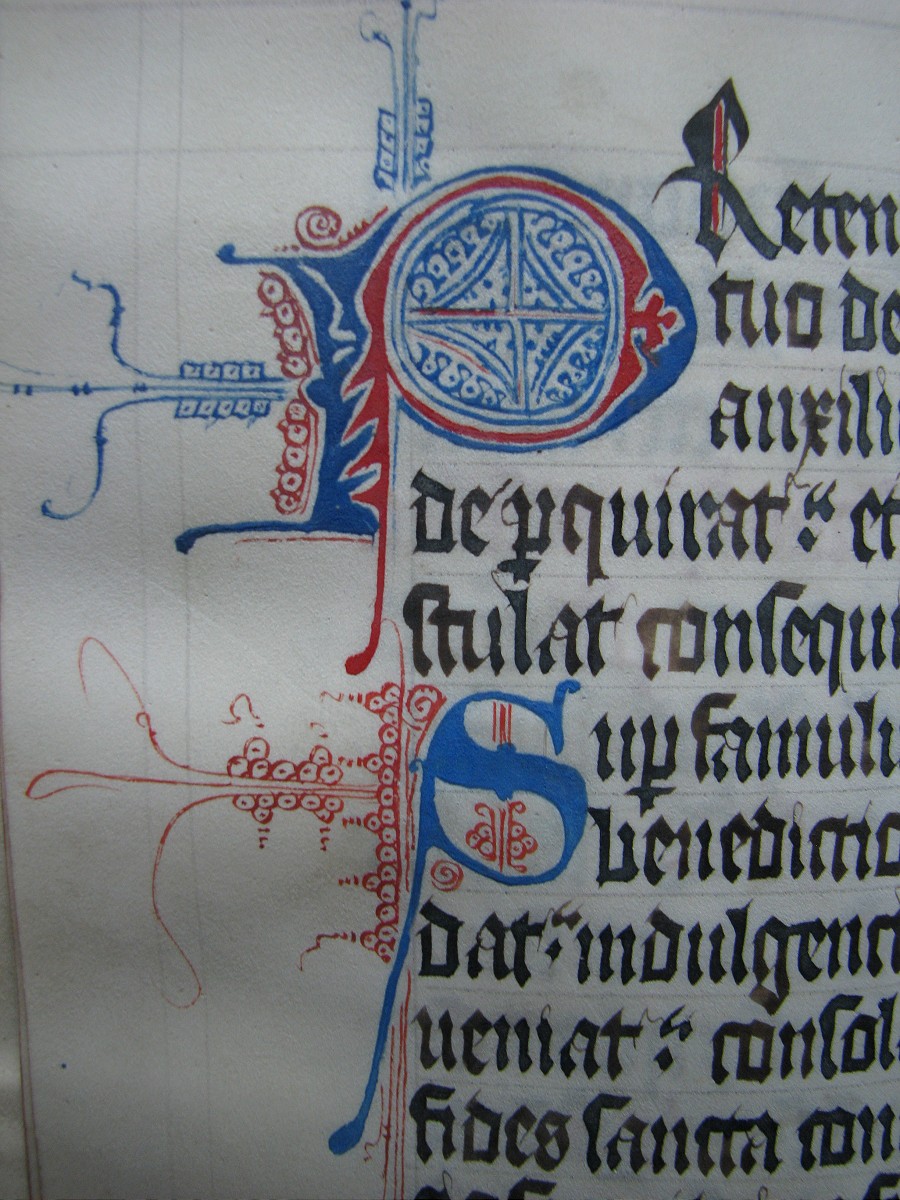 PReten
tuo de
auxili
de ꝑquirat et
stulat consequi
Suꝑ famulu
benedictio
dat indulgenci
ueniat consol
fides sancta con